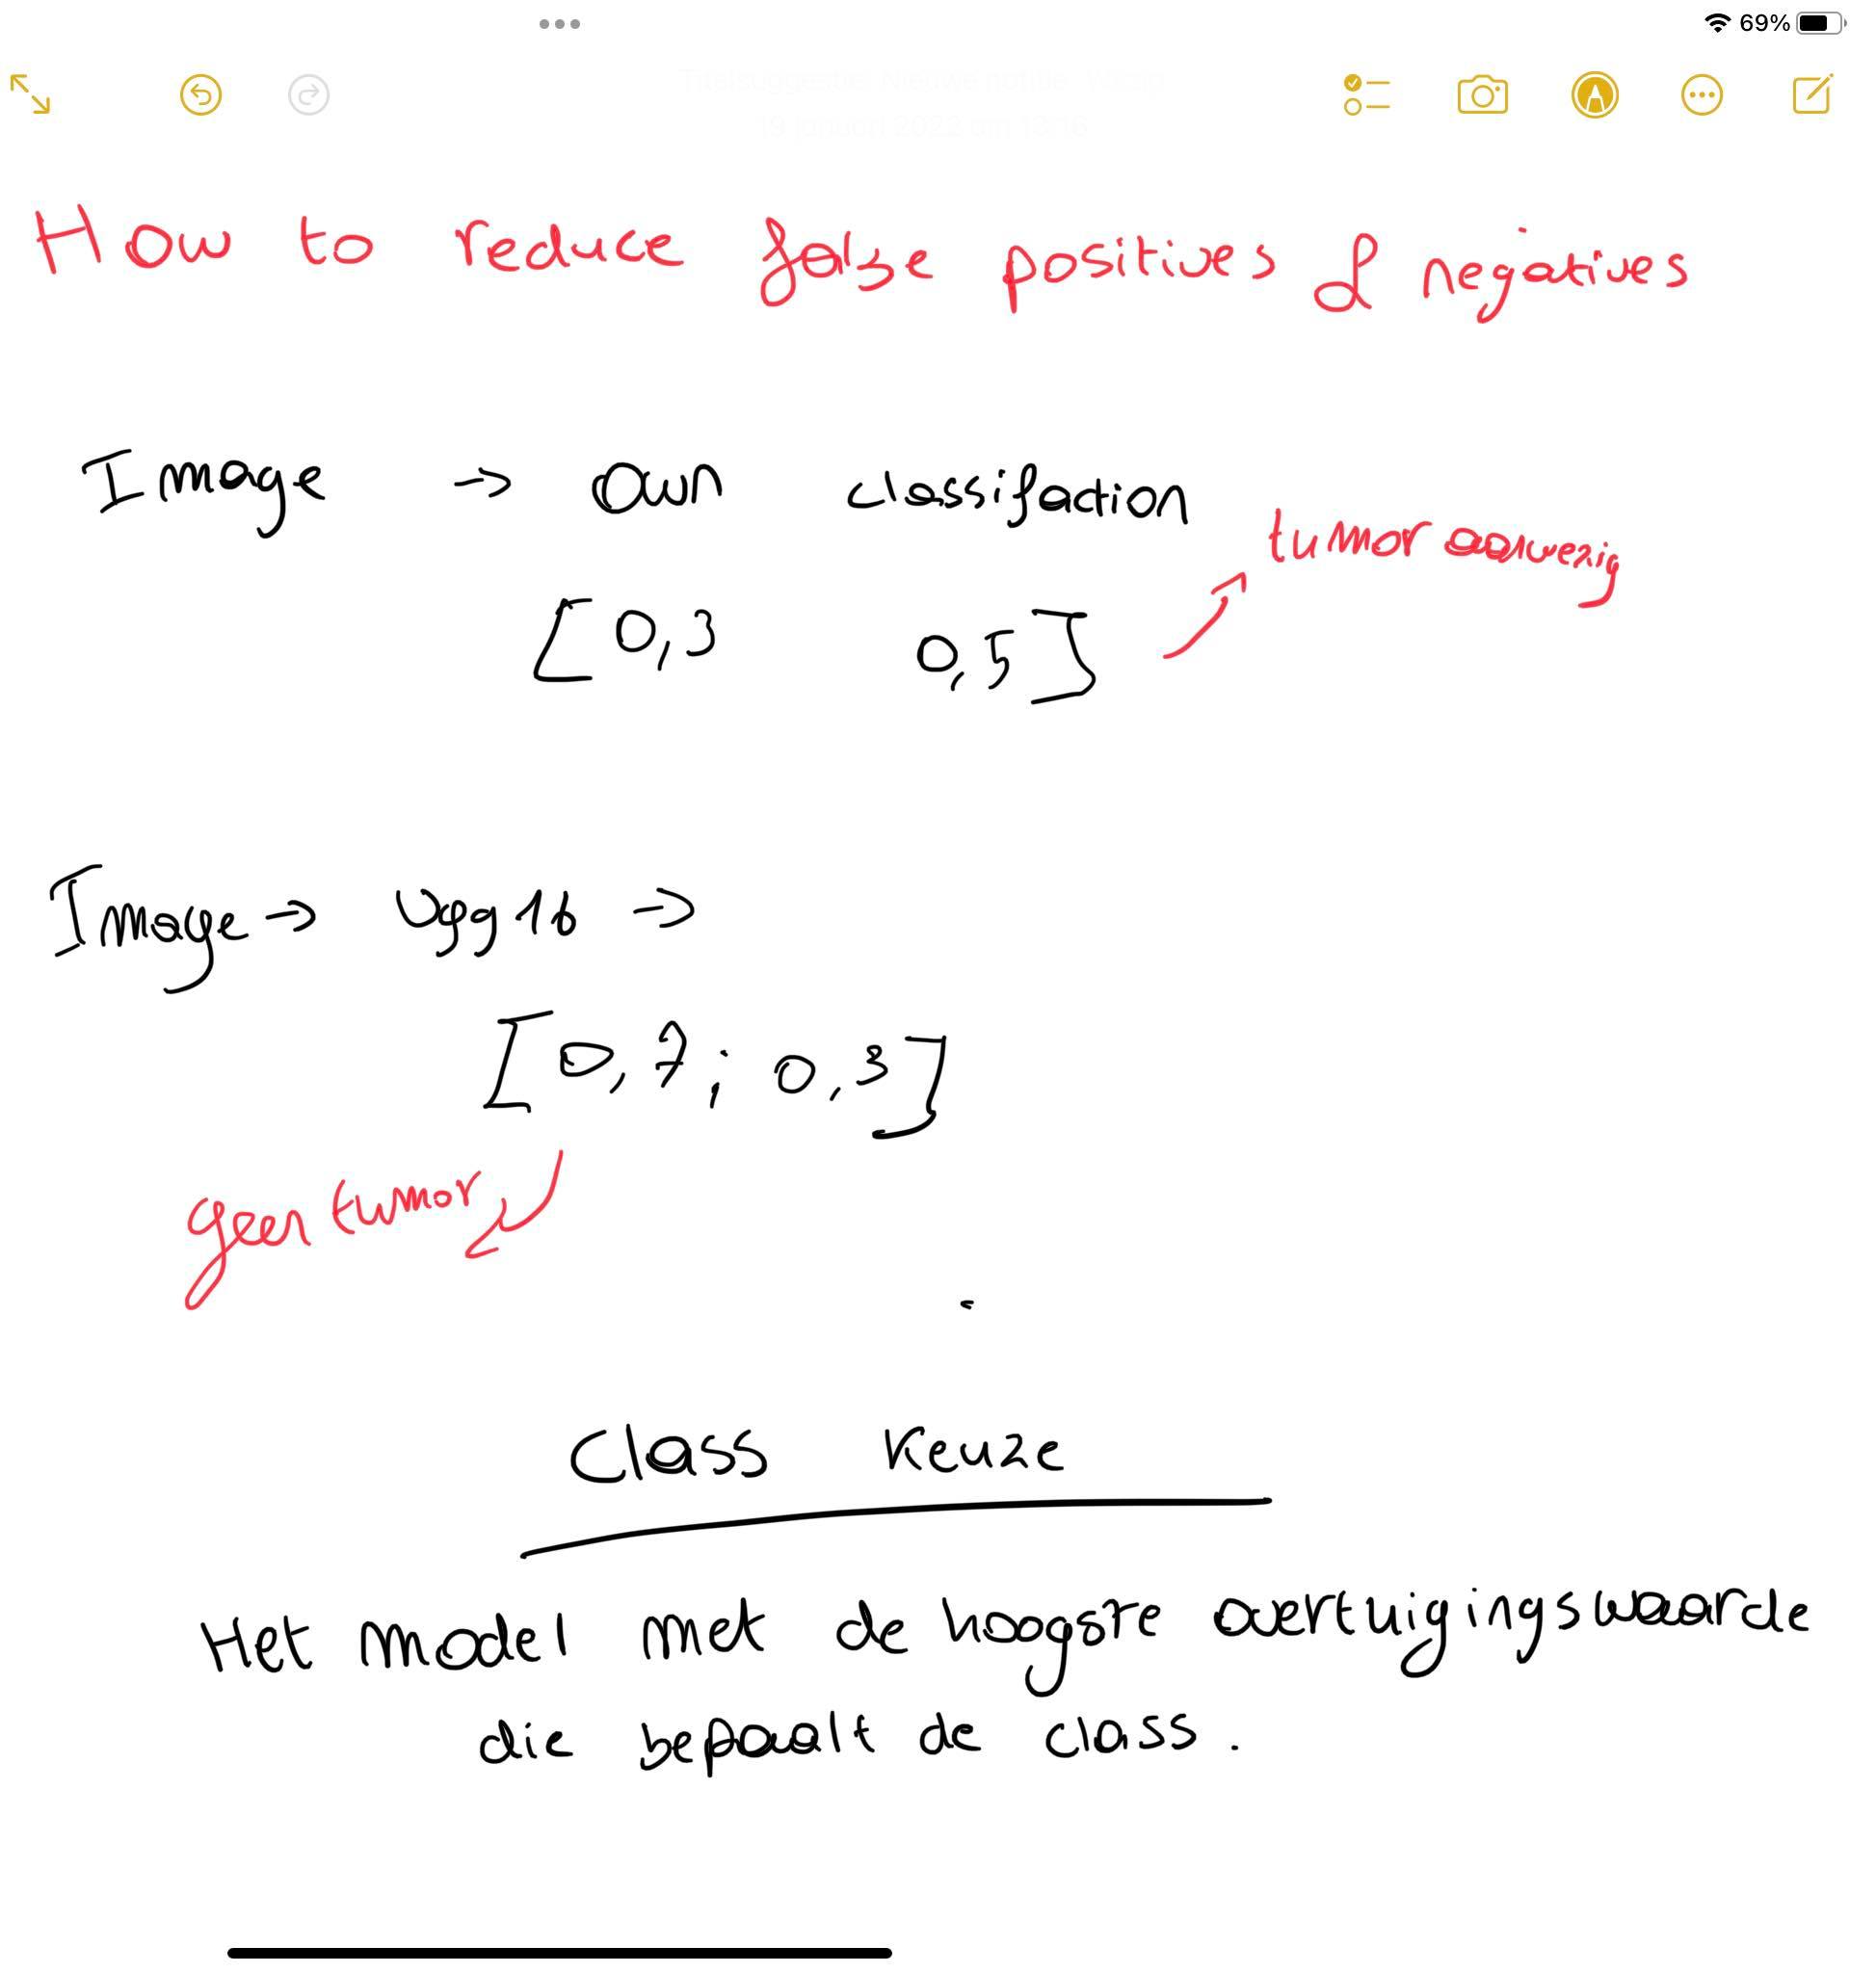 69%
How to reduce false positives & negatives
Image → own classifaction
tumor aanwezig
[0,3 0,5]
Image → Vgg16 →
[0,7; 0,3]
geen tumor
Class Keuze
Het model met de hoogste overtuigingswaarde
die bepaalt de class.